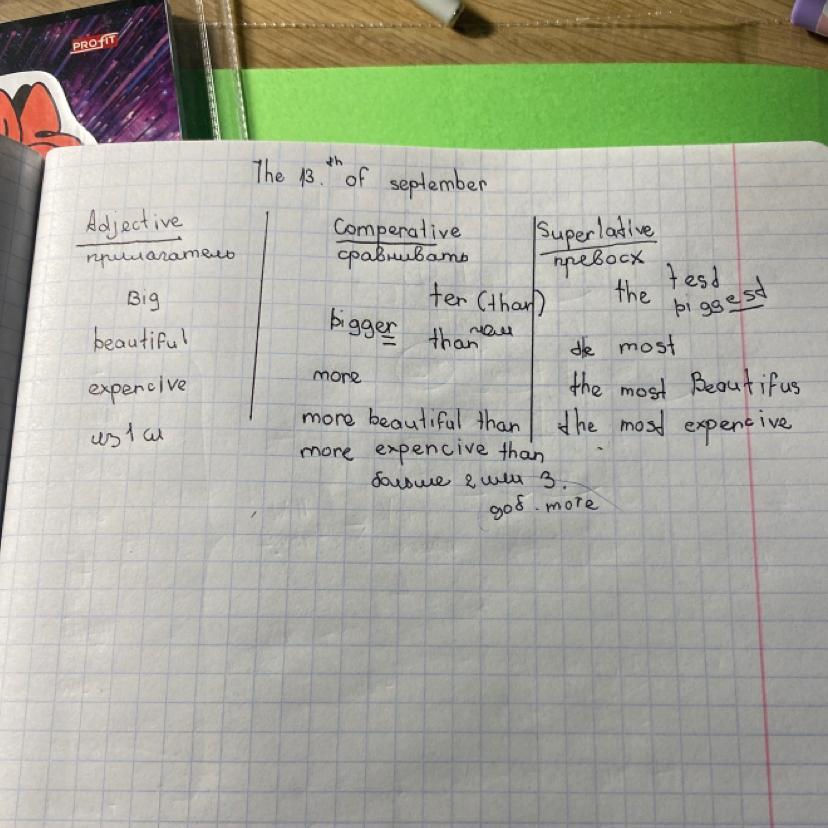 PROFIT
The 13.th of september
Adjective
прилагатель
Big
beautiful
expencive
из 1 сл
Comperative
сравнивать
ter (than)
bigger than чем
more
more beautiful than
more expencive than
больше 2 или 3.
доб. more
Superlative
превосх
the tesd
biggesd
the most
the most Beautifus
the most expencive